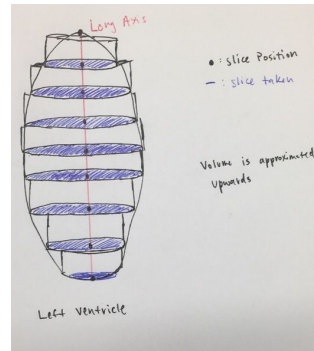 Long Axis
• : slice Position
— : slice taken
Volume is approximated
upwards
Left Ventricle